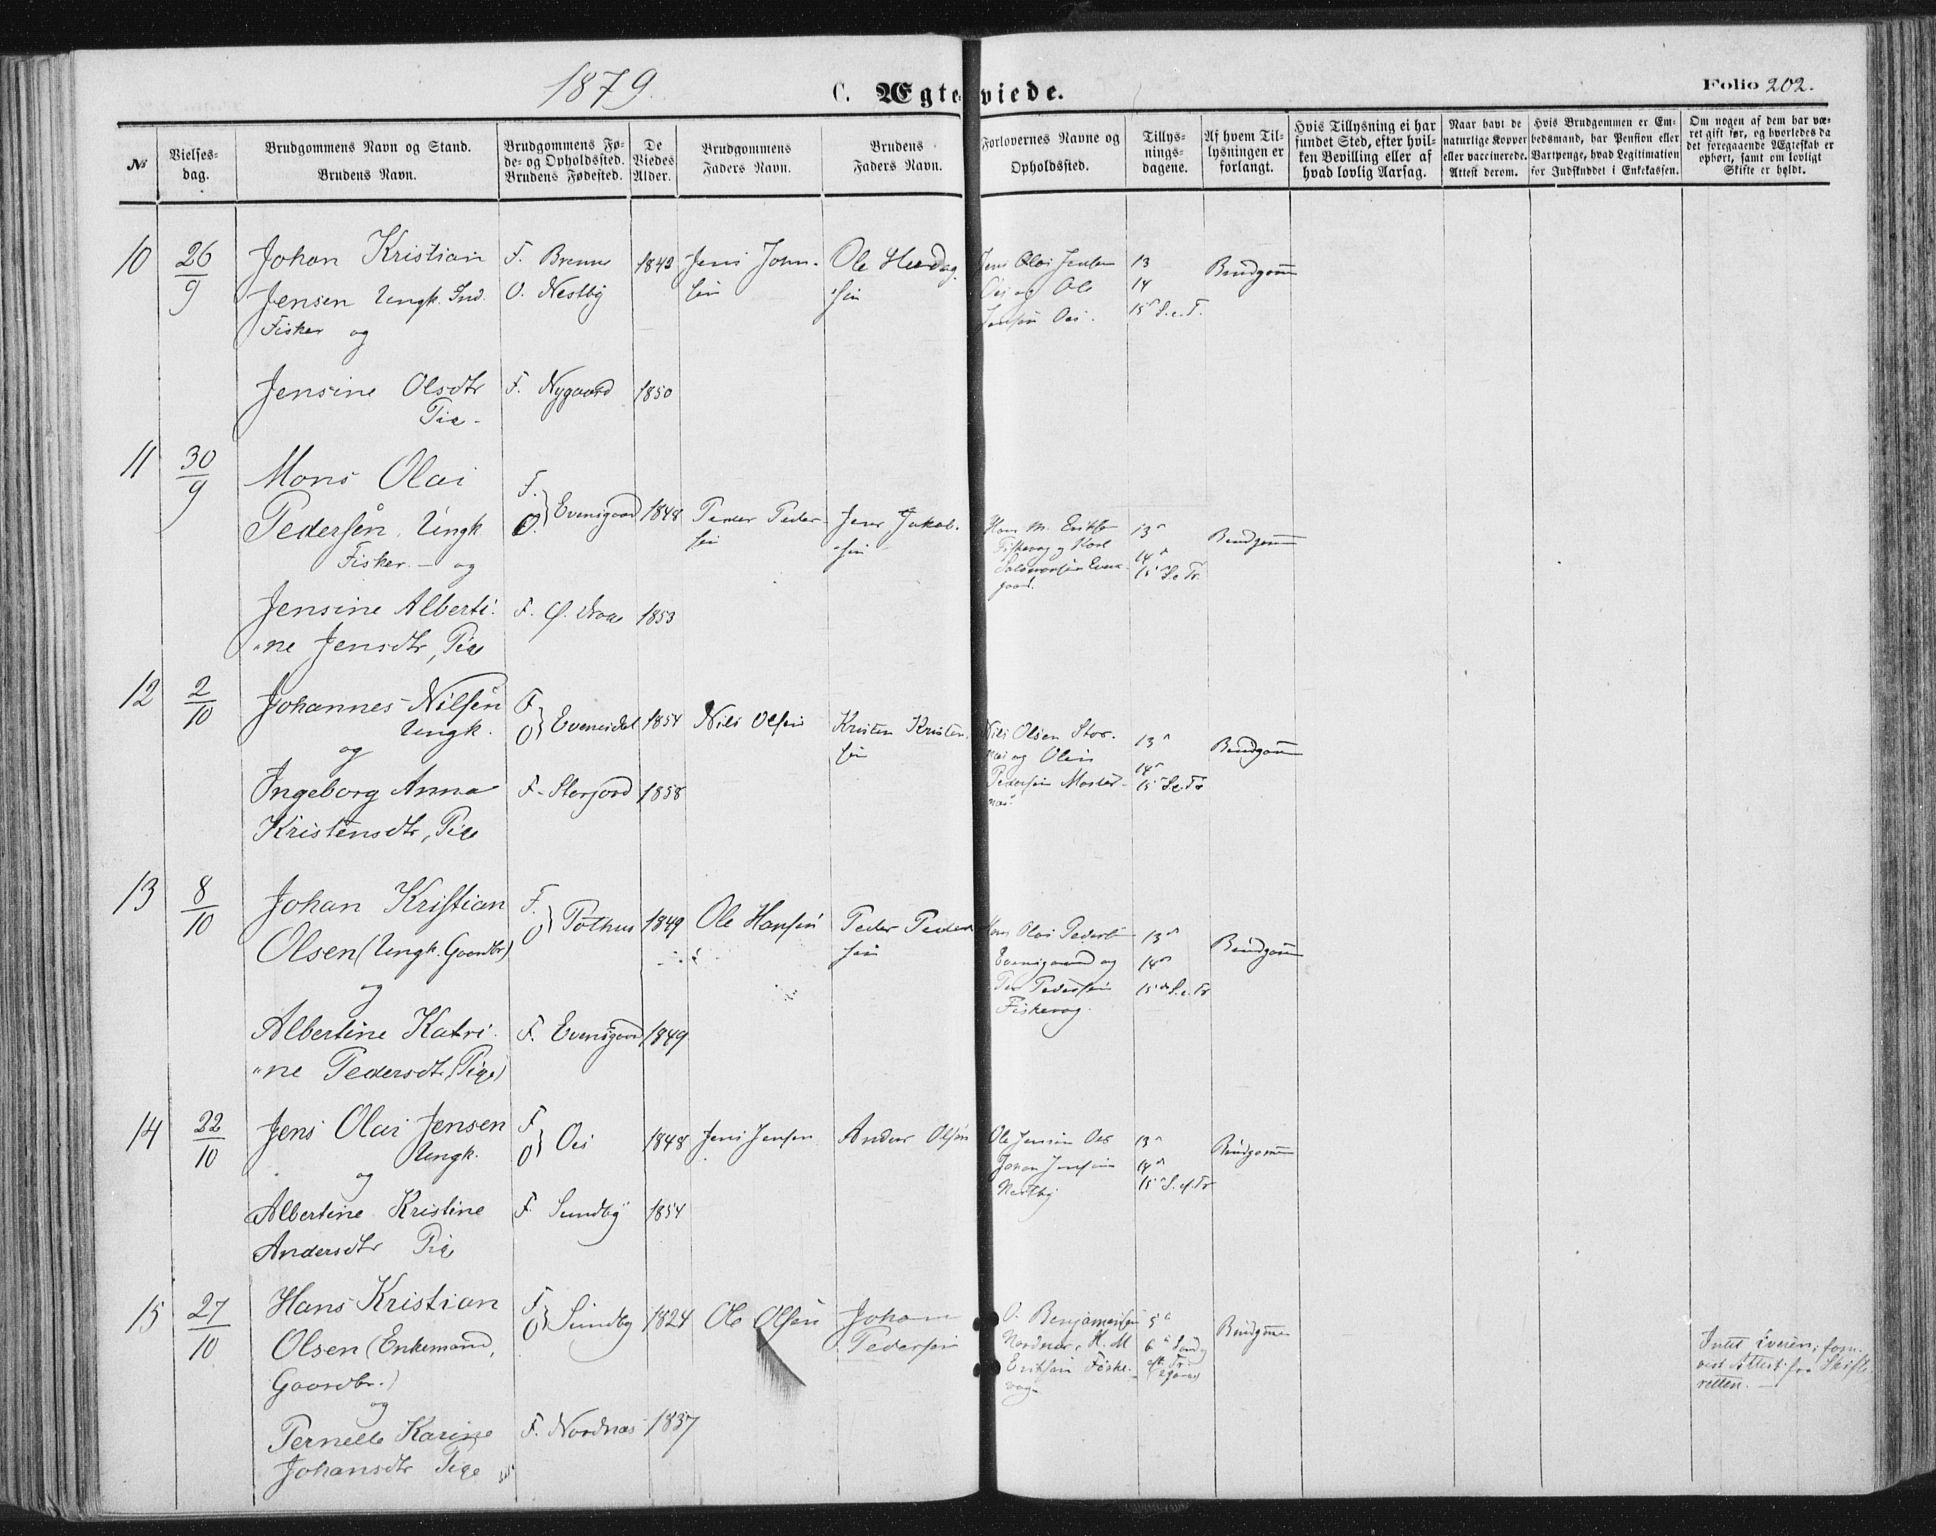 1879.
C. Ægteviede.
Folio 202.
№
Vielses-
dag.
Brudgommens Navn og Stand.
Brudens Navn.
Brudgommens Fø-
de- og Opholdssted.
Brudens Fødested.
De
Viedes
Alder.
Brudgommens
Faders Navn.
Brudens
Faders Navn.
Forlovernes Navne og
Opholdssted.
Tillys-
nings-
dagene.
Af hvem Til-
lysningen er
forlangt.
Hvis Tillysning ei har
fundet Sted, efter hvil-
ken Bevilling eller af
hvad lovlig Aarsag.
Naar havt de
naturlige Kopper
eller vaccinerede.
Attest derom.
Hvis Brudgommen er Em-
bedsmand, har Pension eller
Vartpenge, hvad Legitimation
for Indskuddet i Enkekassen.
Om nogen af dem har væ-
ret gift før, og hvorledes da
det foregaaende Ægteskab er
ophørt, samt om lovligt
Skifte er holdt.
10
26/9
Johan Kristian
Jensen Ungk. Ind.
Fisker og
Jensine Olsdtr
Pie.
F. Brenne
O. Nestby
F. Nygaard
1849
1850
Jens John-
sen
Ole
sen
Jens Olai Jensen
Oes og Ole
Jensen Oes.
13
14
15 S. e. T.
Brudgom
11
30/9
Mons Olai
Pedersen, Ungk
Fisker. — og
Jensine Alberti-
ne Jensdtr, Pige
F.
O. } Evensgaard
F. Ø.
1848
1853
Peder Peder-
sen
Jens Jakob-
sen
Hans M. Eriksen
Fiskevag og Karl
gaard.
13
14
15 S. e. Tr.
Brudgom
12
2/10
Johannes Nilsen
Ungk.
og
Ingeborg Anna
Kristensdtr, Pige
F.
O } Evenesdal
F. Storjord
1854
1858
Nils Olsen
Kristen Kristen-
sen
Nils Olsen Stor-
næs og
Pedersen
næs
13
14
15 S. e. Tr
Brudgom
13
8/10
Johan Kristian
Olsen (Ungk. Gaardbr)
og
Albertine Katri-
ne Pedersdt. (Pige)
F.
O } Pothus
F. Evensgaard
1849
1849
Ole Hansen
Peder Peder
sen
Hans Olai Pedersen
Evensgaard og
Per Pedersen
Fiskevag.
13
14
15 S. e. Tr
Brudgom
14
22/10
Jens Olai Jensen
Ungk.
og
Albertine Kristine
Andersdtr Pige
F
O } Oes
F. Sundby
1848
1854
Jens Jensen
Anders Olsen
Ole Jensen Oes
Johan Jensen
Nestby
13
14
15 S. e. Tr
Brudgom
15
27/10
Hans Kristian
Olsen (Enkemand,
Gaardbr.)
og
Pernelle Karine
Johansdtr Pige
F
O } Sundby
F. Nordnæs
1824
1837
Ole Olsen
Johan
Pedersen
O. Benjaminsen
Nordnæs, H. M
Eriksen Fiske-
vag
5
6 Sondg
eft. Tr
Brudgom
Intet Eieren; frem-
vist Attest fra Skift-
retten. —